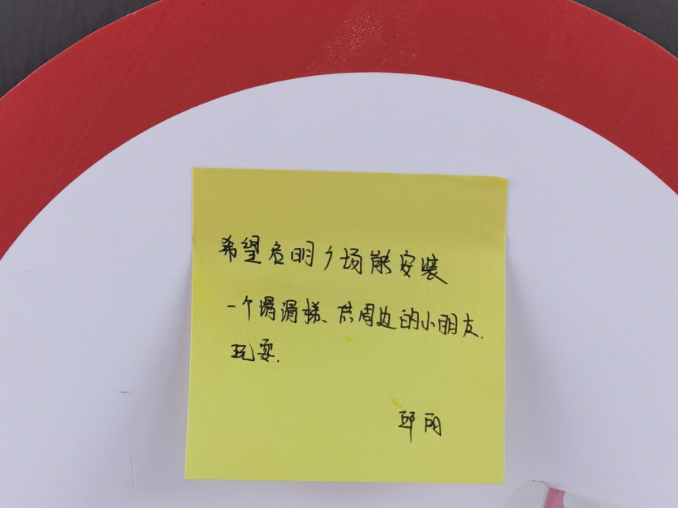 希望启明广场能安装
一个滑滑梯、供周边的小朋友.
玩耍.
邱丽